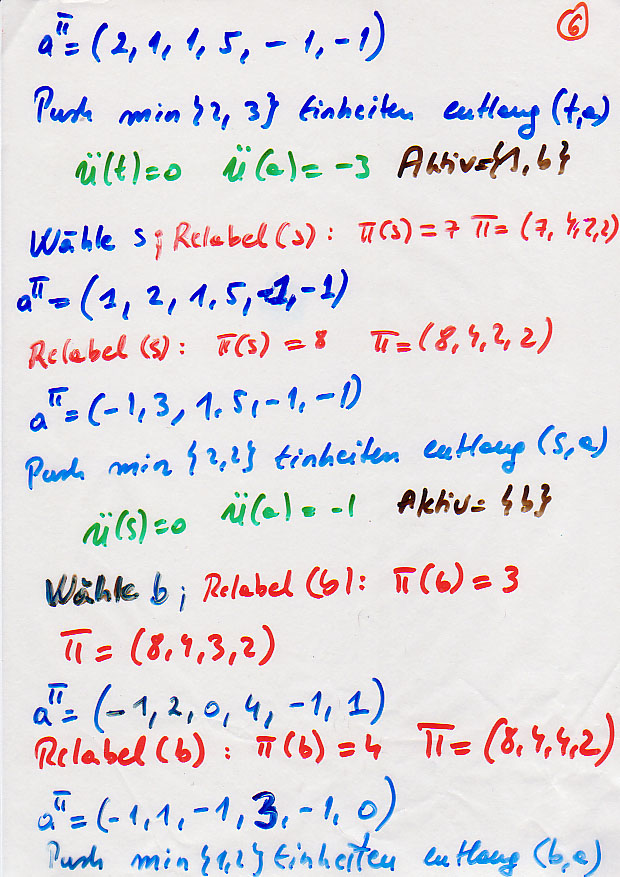 6
a^π = (2, 1, 1, 5, -1, -1)
Push min {2, 3} Einheiten entlang (t,a)
ü(t)=0 ü(a) = -3 Aktiv={s,b}
Wähle s; Relabel(s): π(s) = 7 π = (7, 4, 2, 2)
a^π = (1, 2, 1, 5, -1, -1)
Relabel(s): π(s) = 8 π = (8, 4, 2, 2)
a^π = (-1, 3, 1, 5, -1, -1)
Push min {2,2} Einheiten entlang (s,a)
ü(s)=0 ü(a) = -1 Aktiv = {b}
Wähle b; Relabel(b): π(b) = 3
π = (8, 4, 3, 2)
a^π = (-1, 2, 0, 4, -1, 1)
Relabel(b): π(b) = 4 π = (8, 4, 4, 2)
a^π = (-1, 1, -1, 3, -1, 0)
Push min {1,2} Einheiten entlang (b,a)